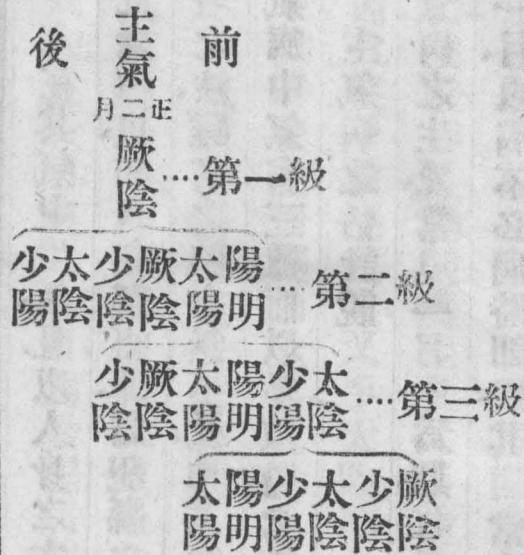 前
主氣
正二月
厥陰
後
第一級
少陽
太陰
少陰
厥陰
太陽
陽明
第二級
少陰
厥陰
太陽
陽明
少陽
太陰
第三級
太陽
陽明
少陽
太陰
少陰
厥陰